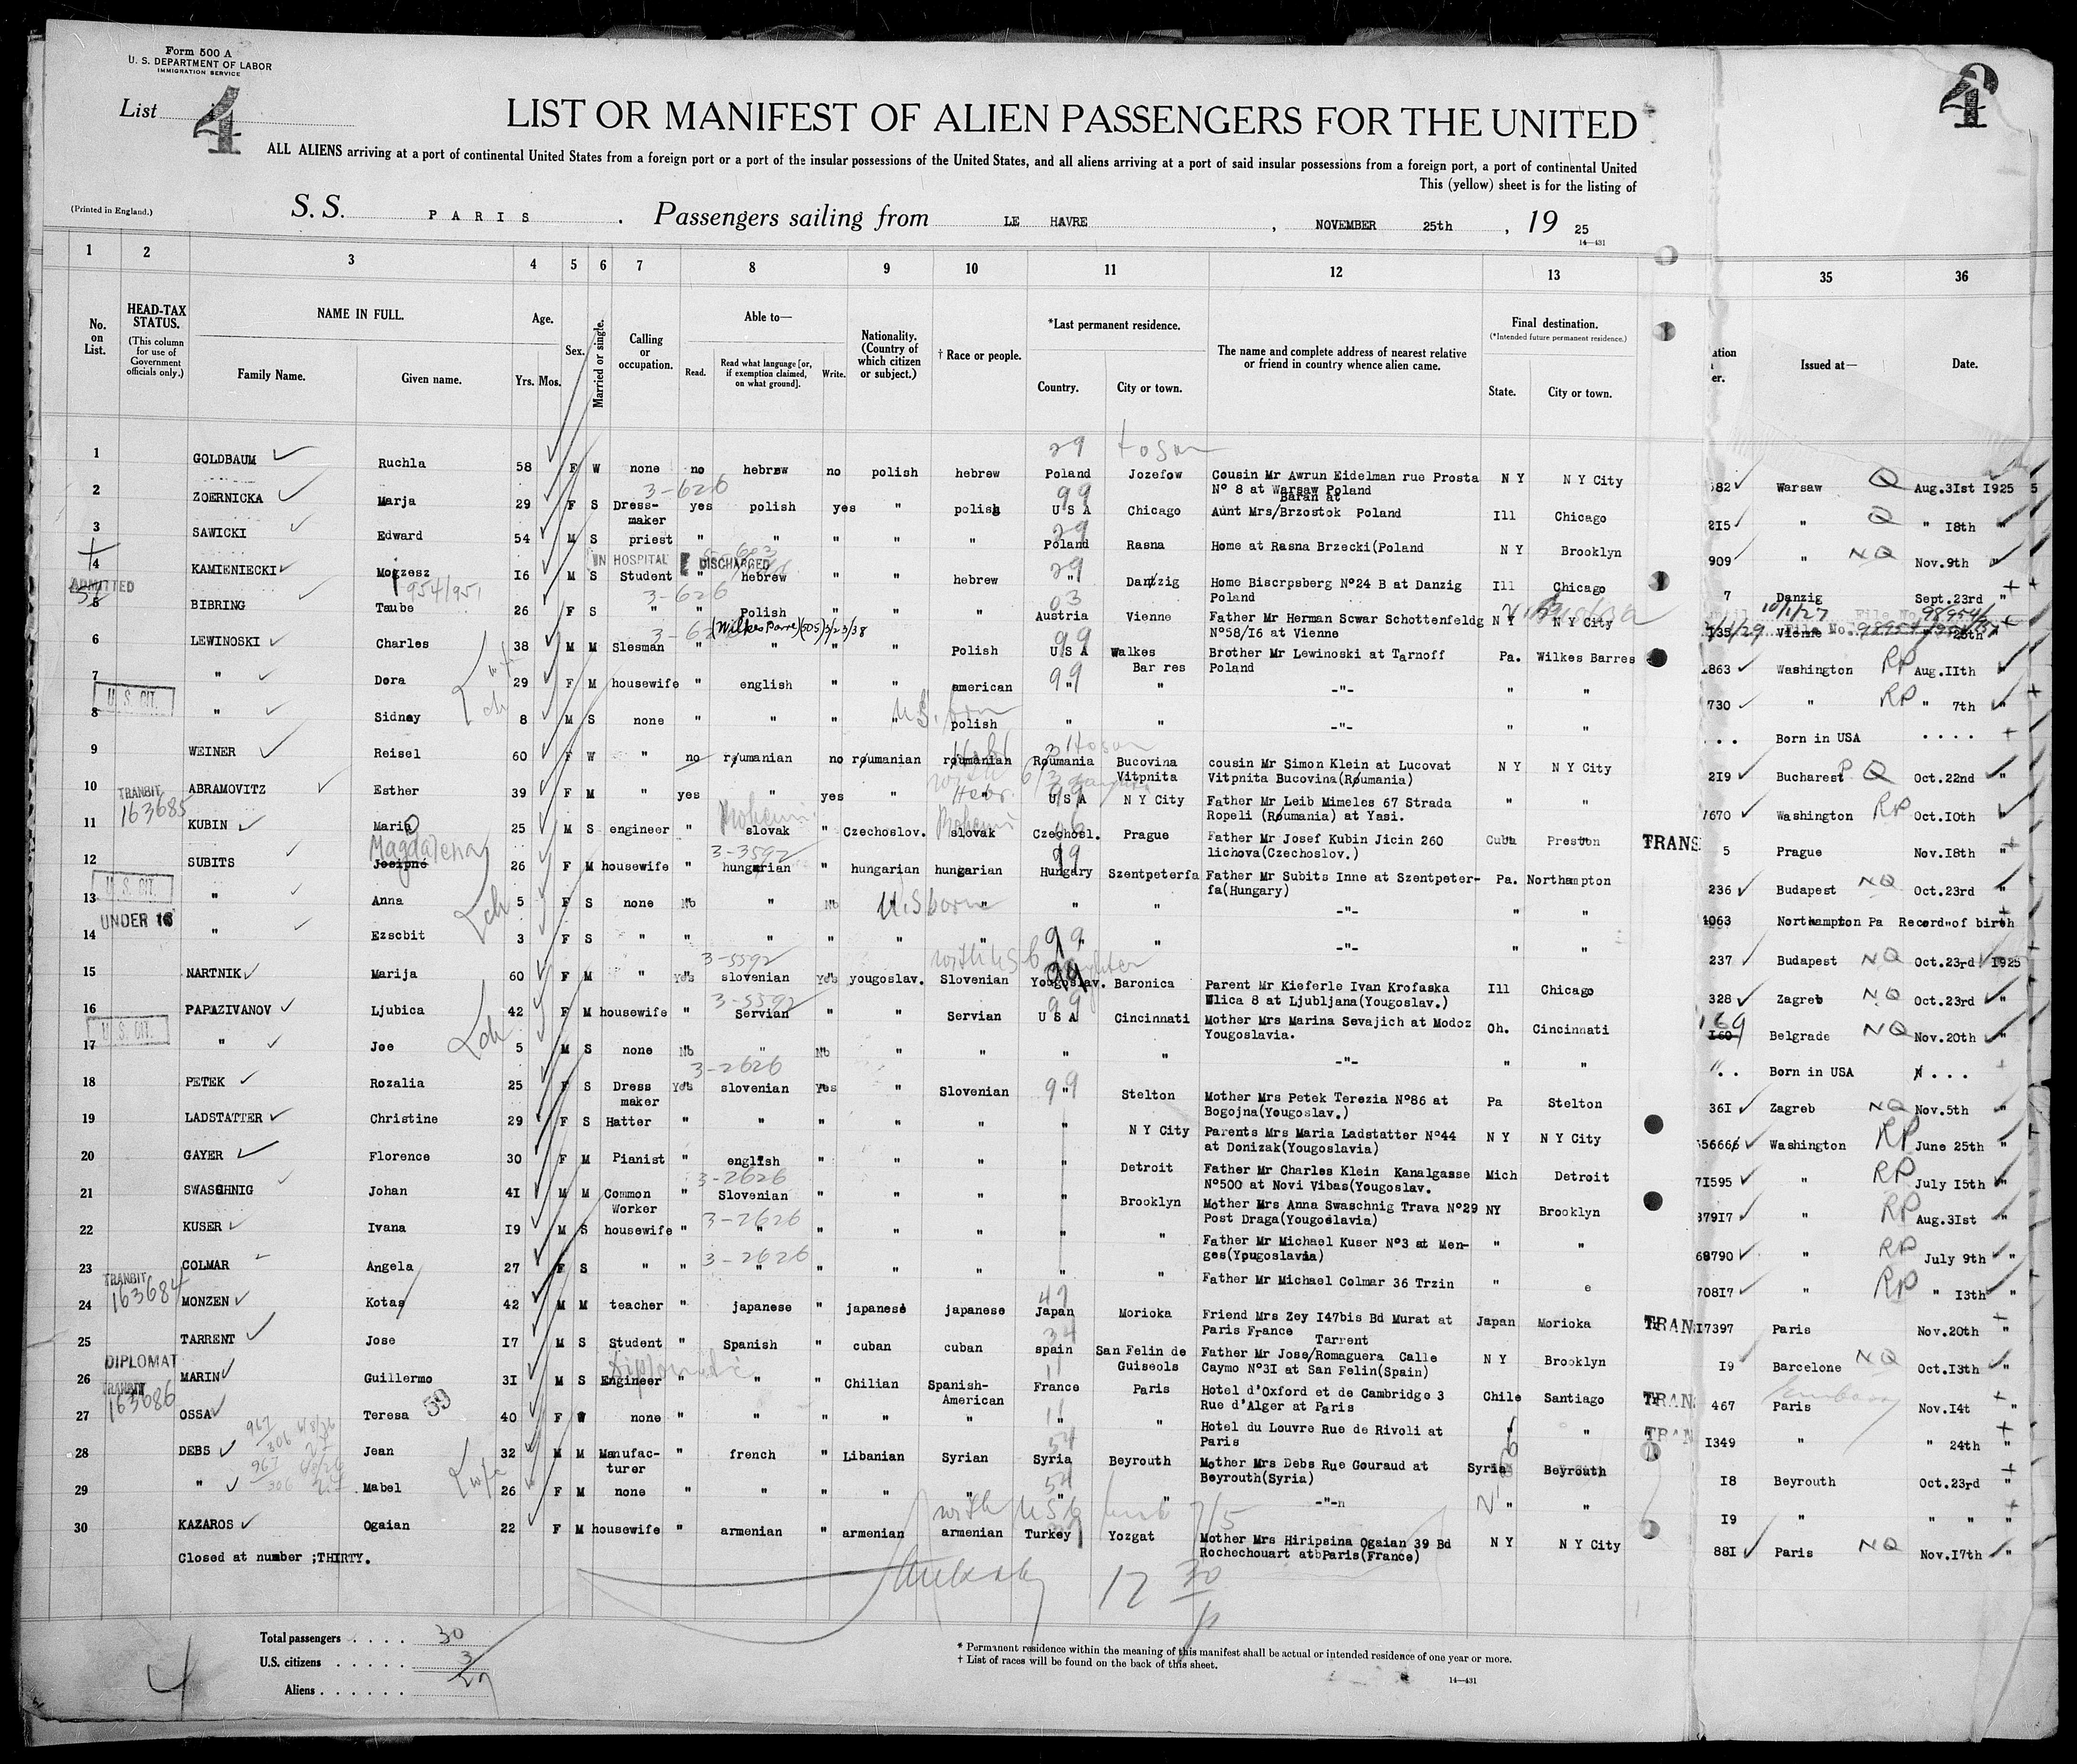 Form 500 A
U. S. DEPARTMENT OF LABOR
IMMIGRATION SERVICE
List 4
4
LIST OR MANIFEST OF ALIEN PASSENGERS FOR THE UNITED
ALL ALIENS arriving at a port of continental United States from a foreign port or a port of the insular possessions of the United States, and all aliens arriving at a port of said insular possessions from a foreign port, a port of continental United
This (yellow) sheet is for the listing of
(Printed in England.)
S. S. PARIS. Passengers sailing from LE HAVRE, NOVEMBER 25th, 19 25
14—431
1 2 3 4 5 6 7 8 9 10 11 12 13 35 36
No. on List.
HEAD-TAX STATUS.
(This column for use of Government officials only.)
NAME IN FULL.
Family Name. Given name.
Age.
Yrs. Mos.
Sex.
Married or single.
Calling or occupation.
Able to—
Read. Read what language [or, if exemption claimed, on what ground]. Write.
Nationality. (Country of which citizen or subject.)
† Race or people.
*Last permanent residence.
Country. City or town.
The name and complete address of nearest relative or friend in country whence alien came.
Final destination.
(*Intended future permanent residence.)
State. City or town.
Issued at— Date.
1 GOLDBAUM Ruchla 58 F W none no hebrew no polish hebrew Poland Jozefow Cousin Mr Awrun Eidelman rue Prosta N Y N Y City 82 Warsaw Q Aug.3Ist I925
Nº 8 at Warsaw Poland
3-626 99
2 ZOERNICKA Marja 29 F S Dress- yes polish yes " polish U S A Chicago Aunt Mrs/Brzostok Poland Ill Chicago 2I5 " Q " I8th "
maker Baran at
29
3 SAWICKI Edward 54 M S priest " " " " " Poland Rasna Home at Rasna Brzecki(Poland N Y Brooklyn 909 " NQ Nov.9th "
IN HOSPITAL DISCHARGED 29
4 KAMIENIECKI Moczesz I6 M S Student " hebrew " " hebrew " Danzig Home Biscrpsberg Nº24 B at Danzig Ill Chicago 7 Danzig Sept.23rd "
Poland
ADMITTED 3-626 03
5 BIBRING Taube 26 F S " " Polish " " " Austria Vienne Father Mr Herman Scwar Schottenfeldg N Y N Y City I35 Vienne 25th
Nº58/I6 at Vienne
(Wilkes Barre) 99
6 LEWINOSKI Charles 38 M M Slesman " " " " Polish U S A Walkes Brother Mr Lewinoski at Tarnoff Pa. Wilkes Barres 863 Washington RP Aug.IIth "
Bar res Poland
99
7 " Dora 29 F M housewife " english " " american " " -"- " " 730 " RP " 7th "
U. S. CIT. U.S. born
8 " Sidney 8 M S none " " " " polish " " -"- " " ... Born in USA ....
9 WEINER Reisel 60 F W " no roumanian no roumanian roumanian Roumania Bucovina cousin Mr Simon Klein at Lucovat N Y N Y City 2I9 Bucharest Q Oct.22nd "
Vitpnita Vitpnita Bucovina(Roumania)
10 ABRAMOVITZ Esther 39 F M " yes " yes " " U S A N Y City Father Mr Leib Mimeles 67 Strada " " 7670 Washington RP Oct.I0th "
Ropeli (Roumania) at Yasi.
TRANSIT 163685
11 KUBIN Mario 25 M S engineer " slovak " Czechoslov. slovak Czechosl. Prague Father Mr Josef Kubin Jicin 260 Cuba Preston TRANS 5 Prague Nov.I8th "
lichova(Czechoslov.)
Magdalena 3-3592 99
12 SUBITS Josipné 26 F M housewife " hungarian " hungarian hungarian Hungary Szentpeterfa Father Mr Subits Inne at Szentpeter- Pa. Northampton 236 Budapest NQ Oct.23rd "
fa(Hungary)
U. S. CIT. U.S born
13 " Anna 5 F S none No " No " " " " -"- " " 4063 Northampton Pa Record of birth
UNDER 16 99
14 " Ezscbit 3 F S " " " " " " " " -"- " " 237 Budapest NQ Oct.23rd I925
3-5592 99
15 NARTNIK Marija 60 F M " Yes slovenian Yes yougoslav. Slovenian Yougoslav. Baronica Parent Mr Kieferle Ivan Krofaska Ill Chicago 328 Zagreb NQ Oct.23rd "
Ulica 8 at Ljubljana(Yougoslav.)
3-5592 99
16 PAPAZIVANOV Ljubica 42 F M housewife " Servian " " Servian U S A Cincinnati Mother Mrs Marina Sevajich at Modoz Oh. Cincinnati 169 Belgrade NQ Nov.20th "
Yougoslavia.
U. S. CIT.
17 " Joe 5 M S none No " No " " " " -"- " " Born in USA
3-2626 99
18 PETEK Rozalia 25 F S Dress Yes slovenian Yes " Slovenian " Stelton Mother Mrs Petek Terezia Nº86 at Pa Stelton 36I Zagreb NQ Nov.5th "
maker Bogojna(Yougoslav.)
19 LADSTATTER Christine 29 F S Hatter " " " " " " N Y City Parents Mrs Maria Ladstatter Nº44 N Y N Y City Washington RP June 25th "
at Donizak(Yougoslavia)
20 GAYER Florence 30 F M Pianist " english " " " " Detroit Father Mr Charles Klein Kanalgasse Mich Detroit 7I595 " RP July I5th "
Nº500 at Novi Vibas(Yougoslav.
3-2626
21 SWASCHNIG Johan 4I M M Common " Slovenian " " " " Brooklyn Mother Mrs Anna Swaschnig Trava Nº29 NY Brooklyn 379I7 " RP Aug.3Ist "
Worker Post Draga(Yougoslavia)
3-2626
22 KUSER Ivana I9 M S housewife " " " " " " " Father Mr Michael Kuser Nº3 at Men- " " 68790 " RP July 9th "
ges(Yougoslavia)
3-2626
23 COLMAR Angela 27 F S " " " " " " " " Father Mr Michael Colmar 36 Trzin " e 708I7 " RP " I3th "
TRANSIT 163684
24 MONZEN Kotas 42 M M teacher " japanese " japanese japanese Japan Morioka Friend Mrs Zey I47bis Bd Murat at Japan Morioka TRAN I7397 Paris Nov.20th "
Paris France
34 Tarrent
25 TARRENT Jose I7 M S Student " Spanish " cuban cuban spain San Felin de Father Mr Jose/Romaguera Calle N Y Brooklyn I9 Barcelone NQ Oct.I3th "
Guiseols Caymo Nº3I at San Felin(Spain)
DIPLOMAT Diplomatic
26 MARIN Guillermo 3I M S Engineer " " " Chilian Spanish- France Paris Hotel d'Oxford et de Cambridge 3 Chile Santiago TRAN 467 Paris Nov.I4t "
American Rue d'Alger at Paris
TRANSIT 163686 59
27 OSSA Teresa 40 F W none " " " " " " " Hotel du Louvre Rue de Rivoli at " " TRAN I349 " " 24th "
Paris
54
28 DEBS Jean 32 M M Manufac- " french " Libanian Syrian Syria Beyrouth Mother Mrs Debs Rue Gouraud at Syria Beyrouth I8 Beyrouth Oct.23rd "
turer Beyrouth(Syria)
54
29 " Mabel 26 F M none " " " " " " " -"-n " " I9 " " " "
30 KAZAROS Ogaian 22 F M housewife " armenian " armenian armenian Turkey Yozgat Mother Mrs Hiripsina Ogaian 39 Bd N Y N Y City 88I Paris NQ Nov.I7th "
Rochechouart atbParis(France)
Closed at number ;THIRTY.
Total passengers . . . . 30
U.S. citizens . . . . . 3
Aliens . . . . . . 27
4
* Permanent residence within the meaning of this manifest shall be actual or intended residence of one year or more.
† List of races will be found on the back of this sheet.
14—431